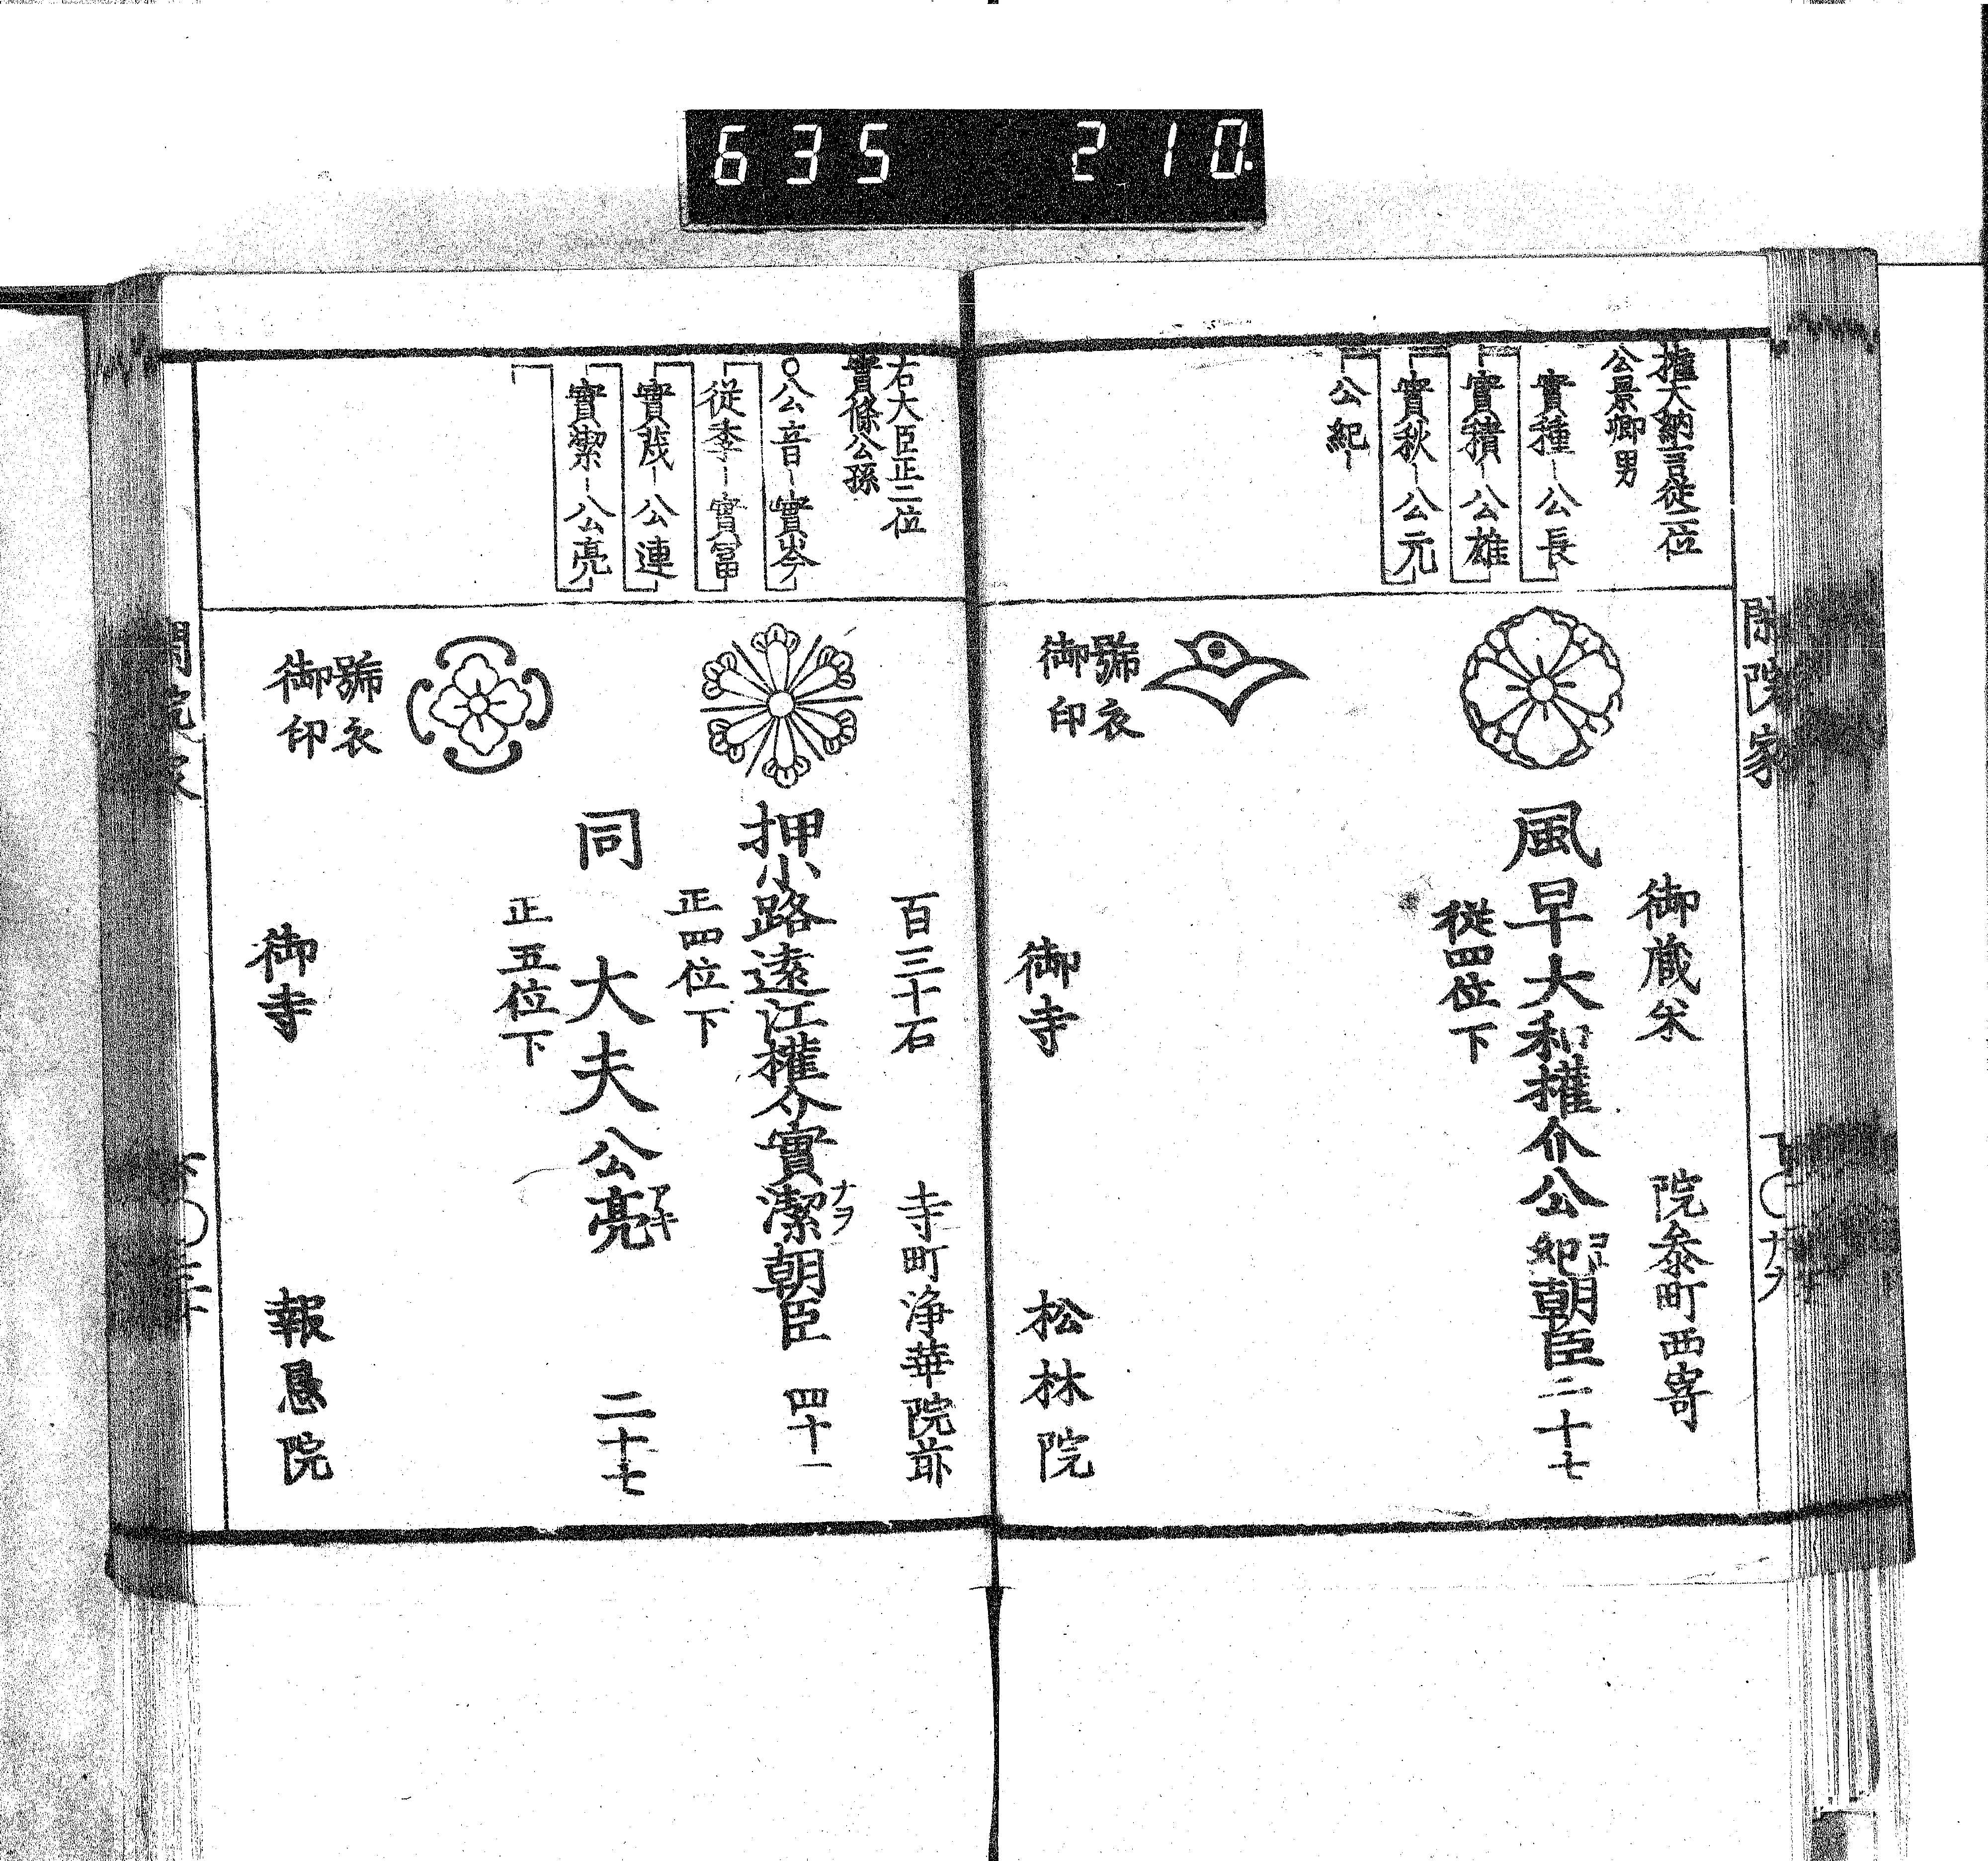 635 210.
閑院家
權大納言従一位
公景卿男
實種-公長
實積-公雄
實秋-公元
公紀-
御蔵米 院参町西寄
風早大和權介公紀朝臣 二十七
従四位下
號衣
御印
御寺 松林院
右大臣正二位
實條公孫
公音-實岑
従季-實冨
實茂-公連
實潔-公亮
百三十石 寺町浄華院前
押小路遠江權介實潔朝臣 四十一
ナヲ
正四位下
同 大夫公亮 二十七
アキ
正五位下
號衣
御印
御寺 報恩院
閑院家